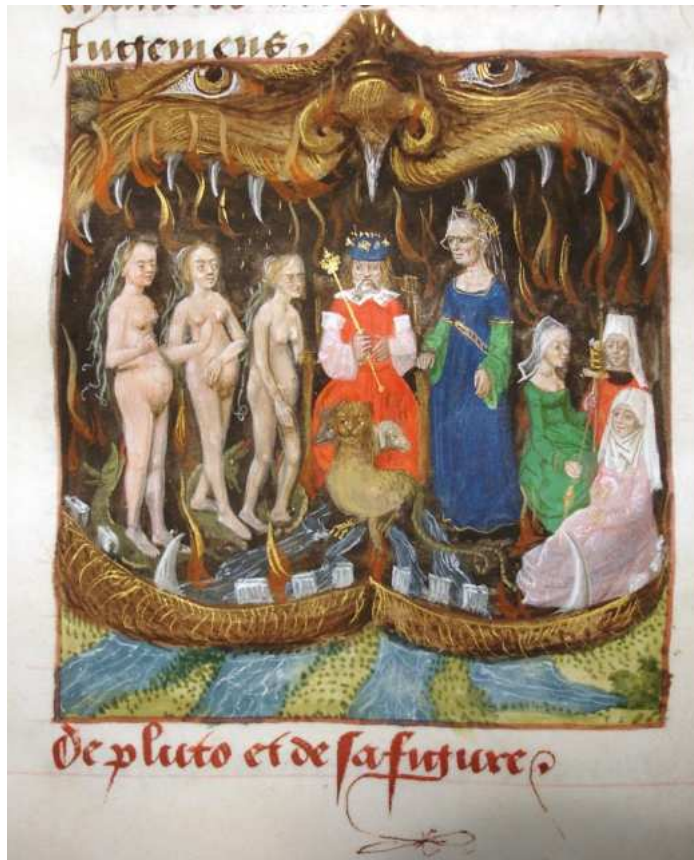 Autremens.
De pluto et de sa figure